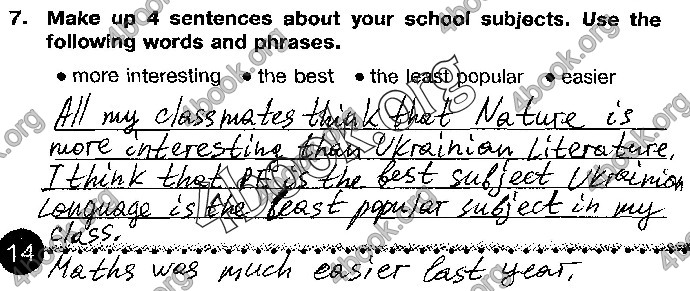 7. Make up 4 sentences about your school subjects. Use the
following words and phrases.
• more interesting • the best • the least popular • easier
All my classmates think that Nature is
more interesting than Ukrainian Literature.
I think that PE is the best subject Ukrainian
Language is the least popular subject in my
class.
14
Maths was much easier last year.
4book.org